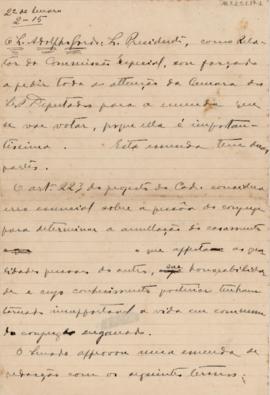 22 de Março
2-15
O Sr. Adolpho Gordo. Sr. Presidente, como Rela-
tor da Commissão Especial, sou forçado
a pedir toda a attenção da Camara dos
Srs. Deputados para a emenda que
se vae votar, porque ella é importan-
tissima. Esta emenda tem duas
partes.
O art. 223 do projecto do Cod. considera
erro essencial sobre a pessôa do conjuge
para determinar a annullação do casamento
o que affecta as qua-
lidades pessoaes do outro, honorabilida-
de e cujo conhecimento posterior tenham
tornado insupportavel a vida em commum
do conjuge enganado.
O Senado approvou uma emenda de
redacção com os seguintes termos: